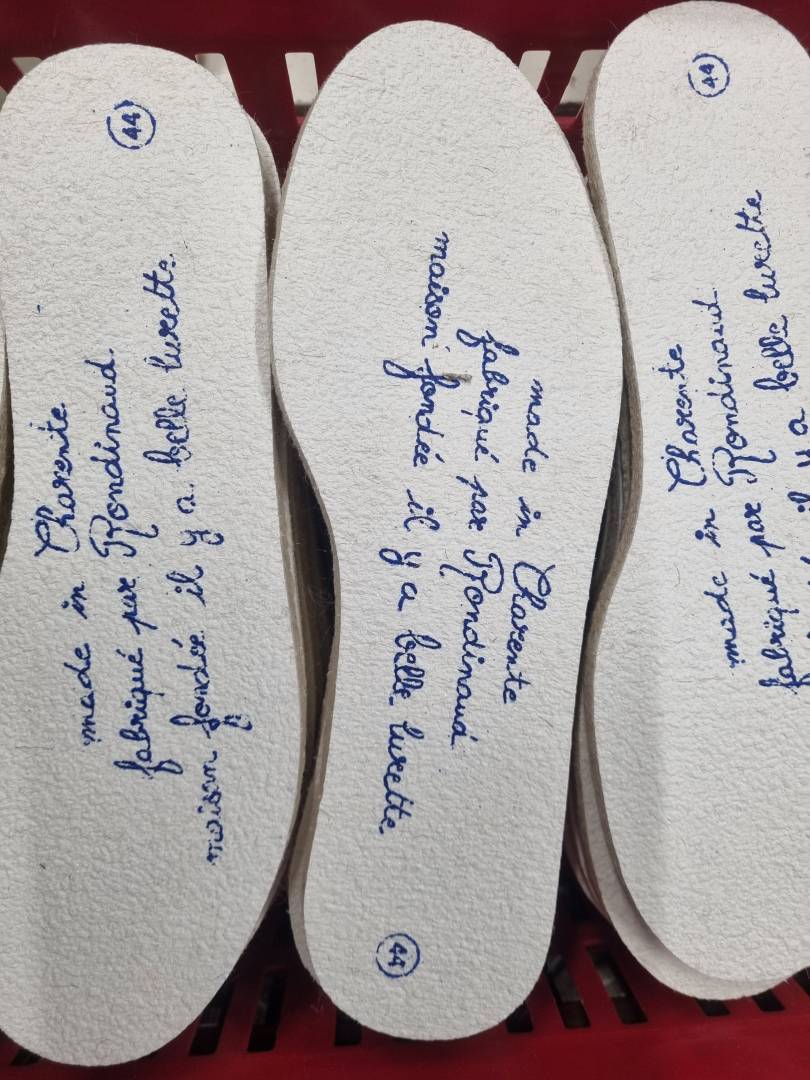 44
made in Charente
fabriqué par Rondinaud.
maison fondée il y a belle lurette.
made in Charente
fabriqué par Rondinaud.
maison fondée il y a belle lurette.
44
44
made in Charente
fabriqué par Rondinaud.
il y a belle lurette